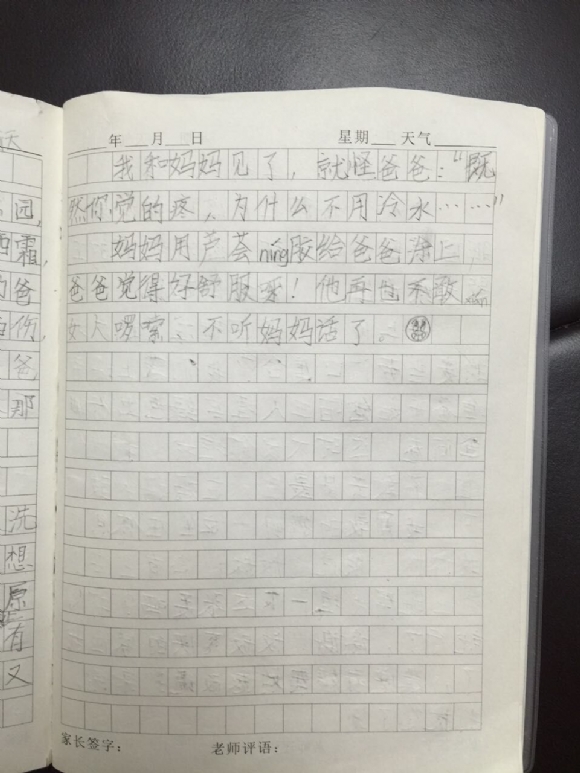 天
年 月 日 星期 天气
我和妈妈见了，就怪爸爸：“既
园，
然你觉的疼，为什么不用冷水……”
霜，
妈妈用芦荟níng胶给爸爸涂上，
爸
爸爸觉得好舒服呀！他再也不敢
伤，
女人啰嗦、不听妈妈话了。
爸
那
洗
想
原
有
又
家长签字： 老师评语：